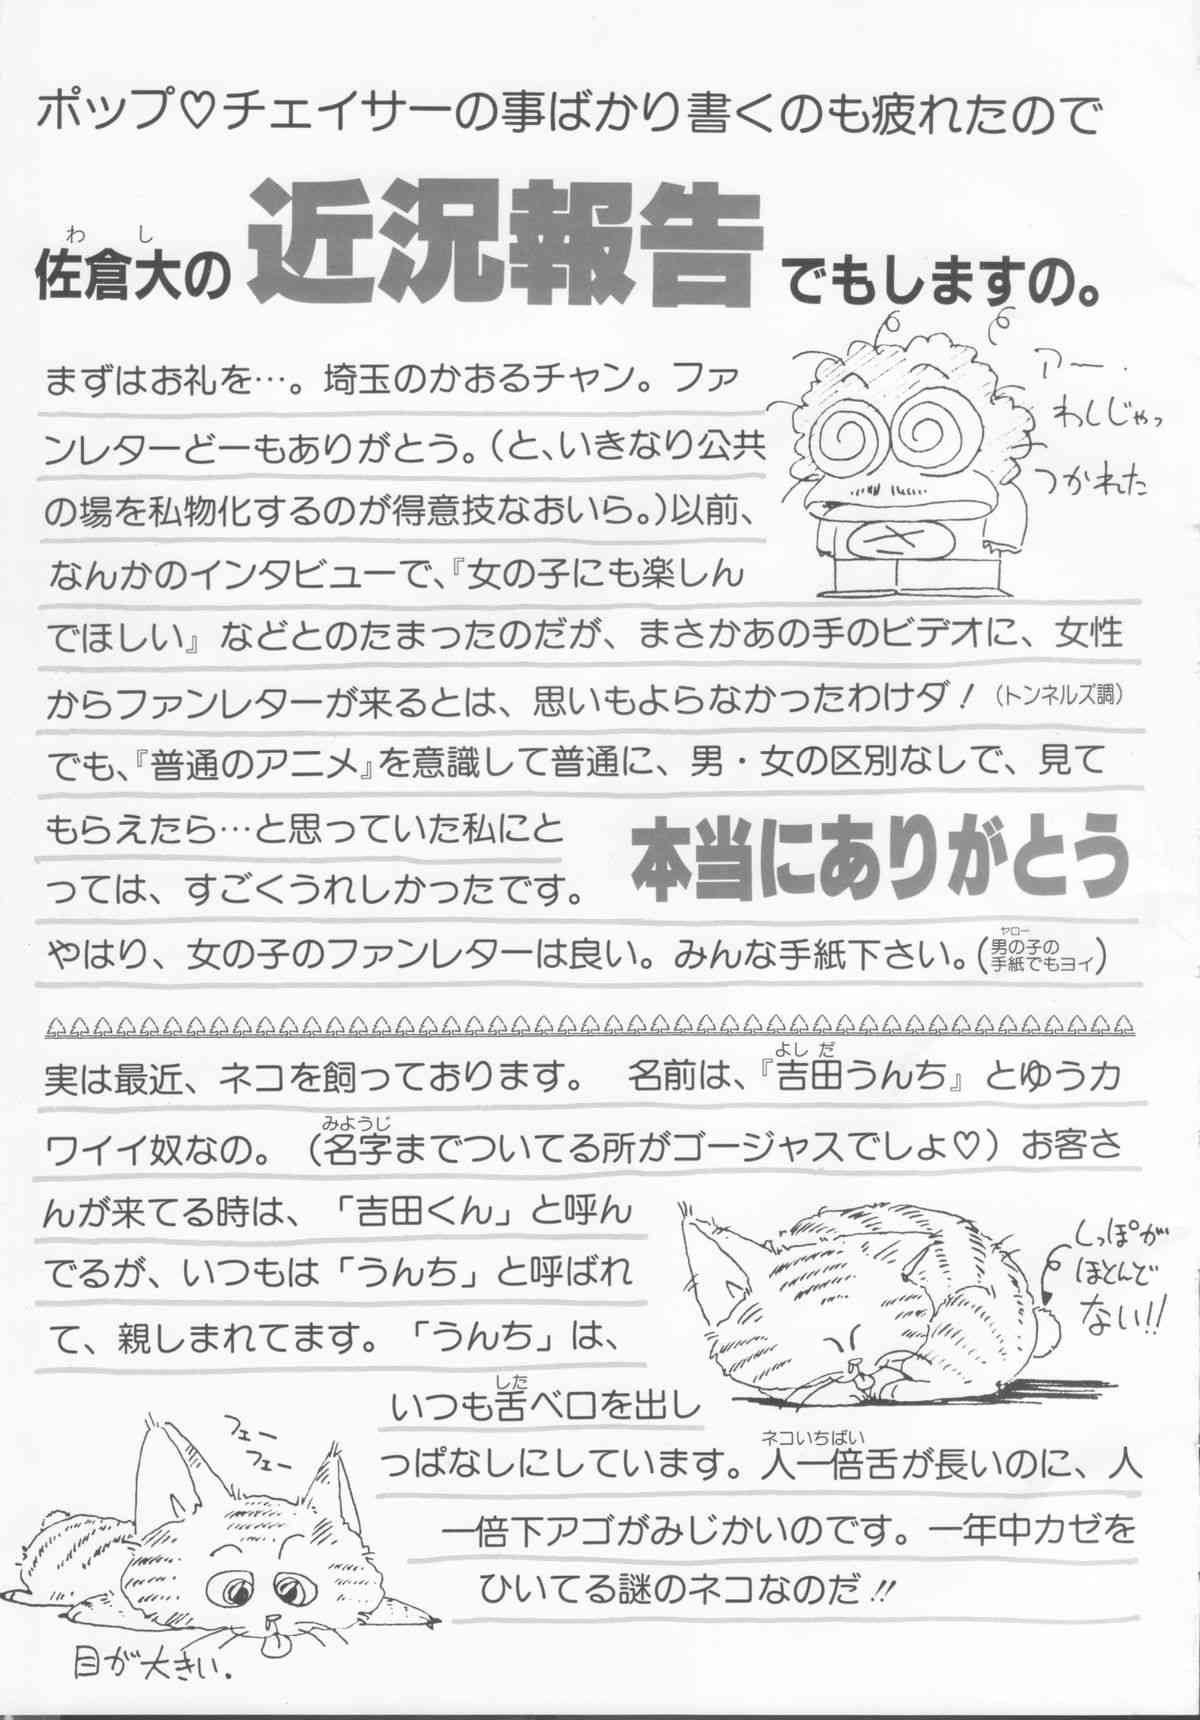 ポップ♡チェイサーの事ばかり書くのも疲れたので
わし
佐倉大の 近況報告 でもしますの。
まずはお礼を…。埼玉のかおるチャン。ファ
ンレターどーもありがとう。(と、いきなり公共
の場を私物化するのが得意技なおいら。)以前、
なんかのインタビューで、『女の子にも楽しん
でほしい』などとのたまったのだが、まさかあの手のビデオに、女性
からファンレターが来るとは、思いもよらなかったわけダ！(トンネルズ調)
でも、『普通のアニメ』を意識して普通に、男・女の区別なしで、見て
もらえたら…と思っていた私にと
っては、すごくうれしかったです。
本当にありがとう
やはり、女の子のファンレターは良い。みんな手紙下さい。(男の子の
ヤロー
手紙でもヨイ)
アー.
わしじゃっ
つかれた
よしだ
実は最近、ネコを飼っております。 名前は、『吉田うんち』とゆうカ
みようじ
ワイイ奴なの。(名字までついてる所がゴージャスでしょ♡)お客さ
んが来てる時は、「吉田くん」と呼ん
でるが、いつもは「うんち」と呼ばれ
て、親しまれてます。「うんち」は、
した
いつも舌ベロを出し
ネコいちばい
っぱなしにしています。人一倍舌が長いのに、人
一倍下アゴがみじかいのです。一年中カゼを
ひいてる謎のネコなのだ!!
しっぽが
ほとんど
ない!!
フェー
フェー
目が大きい.